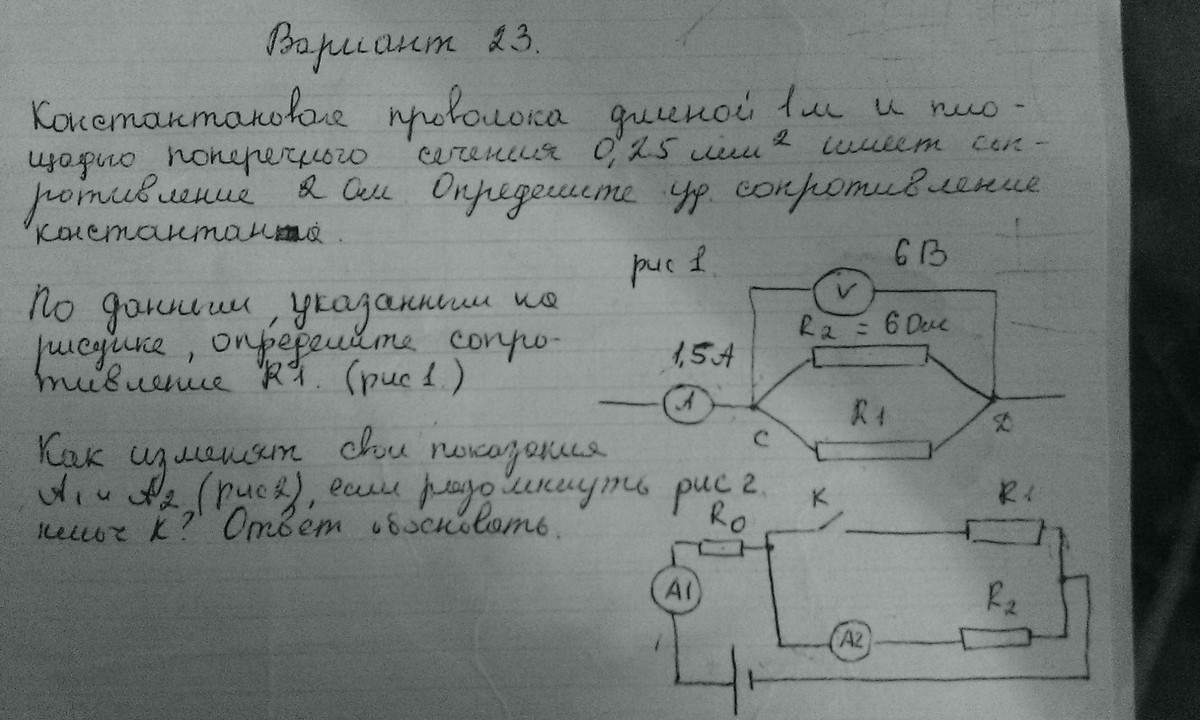 Вариант 23.
Константановая проволока длиной 1м и пло-
щадью поперечного сечения 0,25 мм² имеет соп-
ротивление 2 Ом. Определите уд. сопротивление
константана.
рис 1.
6 В
V
R2 = 6 Ом
1,5 А
А
R1
С
D
По данным, указанным на
рисунке, определите сопро-
тивление R1. (рис 1.)
Как изменят свои показания
А1 и А2 (рис 2), если разомкнуть
ключ К? Ответ обосновать.
рис 2.
R0
К
R1
А1
R2
А2